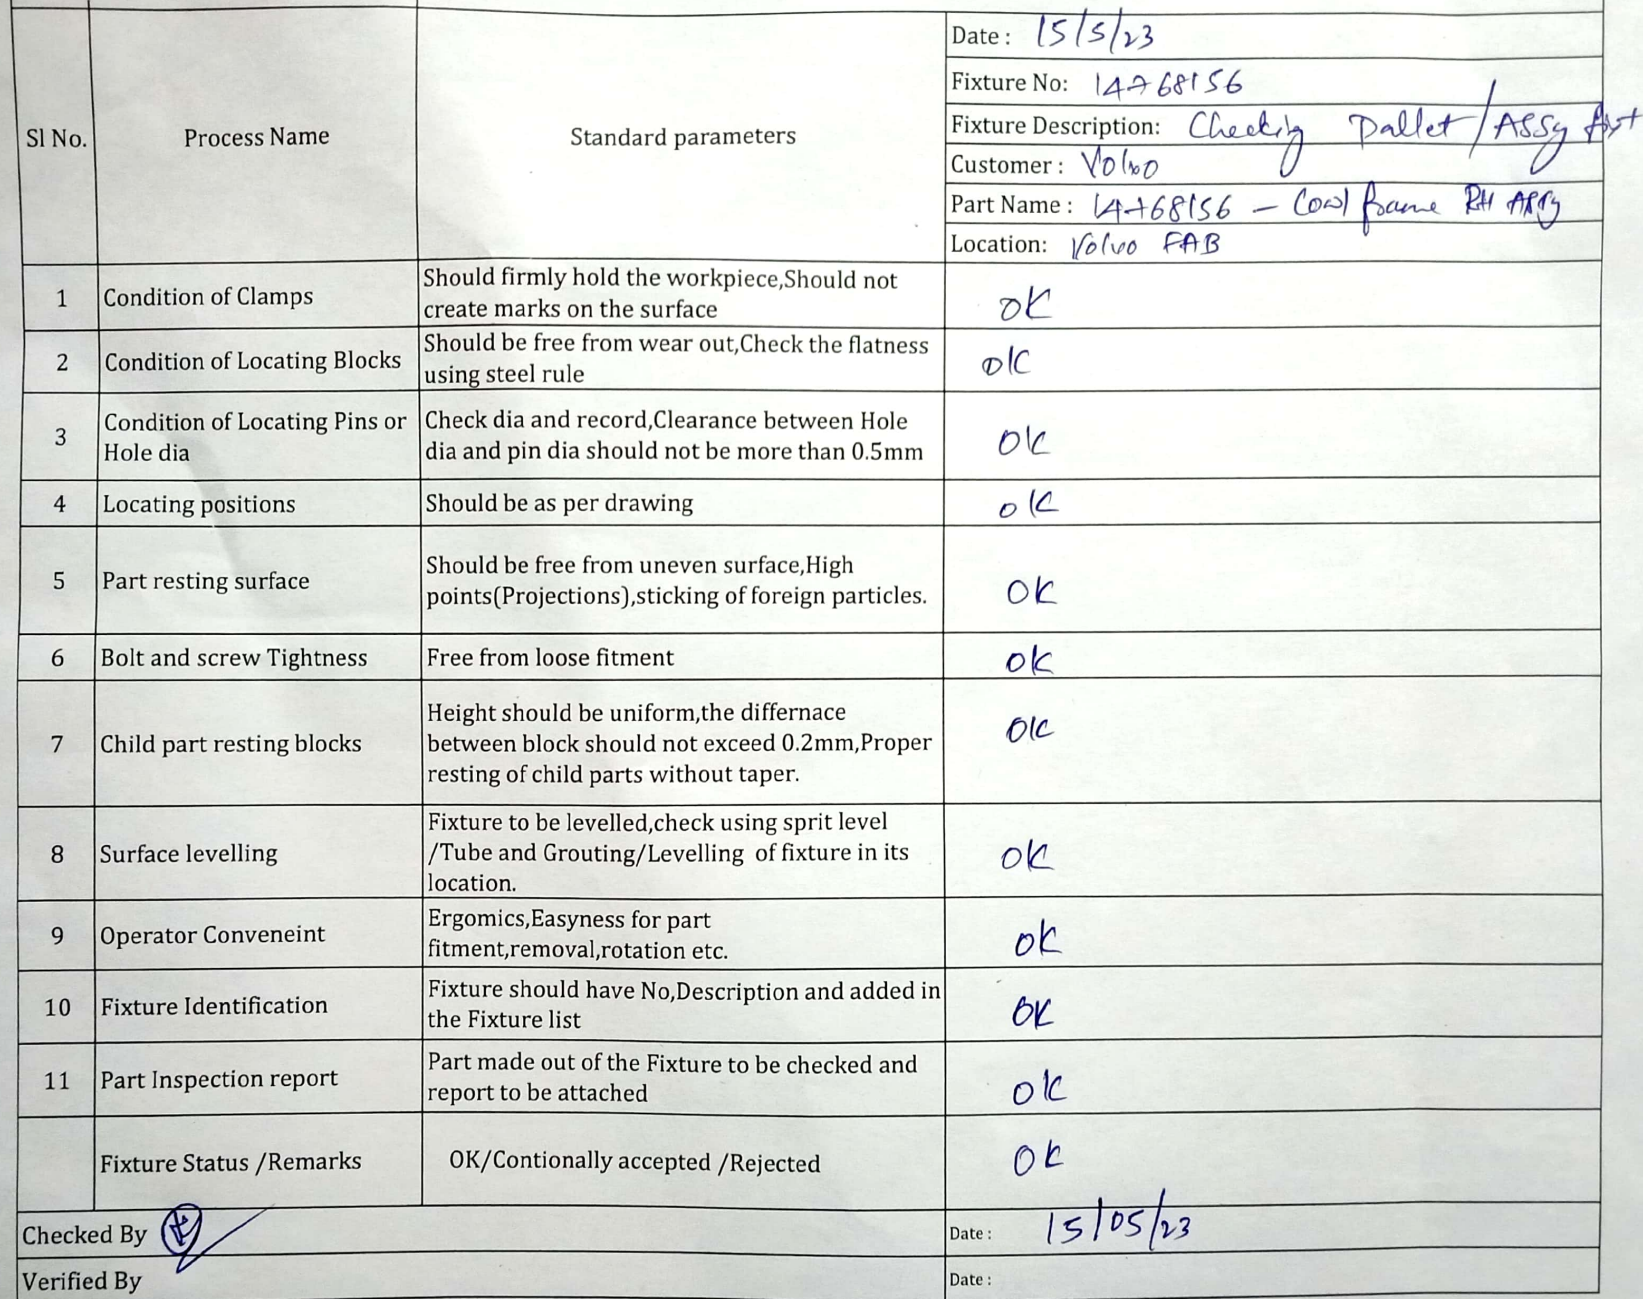 Date : 15/5/23
Fixture No: 14768156
Fixture Description: Checking Pallet/Assy fixt
Sl No. Process Name Standard parameters
Customer : Volvo
Part Name : 14768156 - Cowl frame RH Assy
Location: Volvo FAB
1 Condition of Clamps Should firmly hold the workpiece,Should not
create marks on the surface OK
2 Condition of Locating Blocks Should be free from wear out,Check the flatness
using steel rule OK
3 Condition of Locating Pins or Check dia and record,Clearance between Hole
Hole dia dia and pin dia should not be more than 0.5mm OK
4 Locating positions Should be as per drawing OK
5 Part resting surface Should be free from uneven surface,High
points(Projections),sticking of foreign particles. OK
6 Bolt and screw Tightness Free from loose fitment OK
Height should be uniform,the differnace
7 Child part resting blocks between block should not exceed 0.2mm,Proper OK
resting of child parts without taper.
Fixture to be levelled,check using sprit level
8 Surface levelling /Tube and Grouting/Levelling of fixture in its OK
location.
9 Operator Conveneint Ergomics,Easyness for part
fitment,removal,rotation etc. OK
10 Fixture Identification Fixture should have No,Description and added in
the Fixture list OK
11 Part Inspection report Part made out of the Fixture to be checked and
report to be attached OK
Fixture Status /Remarks OK/Contionally accepted /Rejected OK
Checked By Date : 15/05/23
Verified By Date :